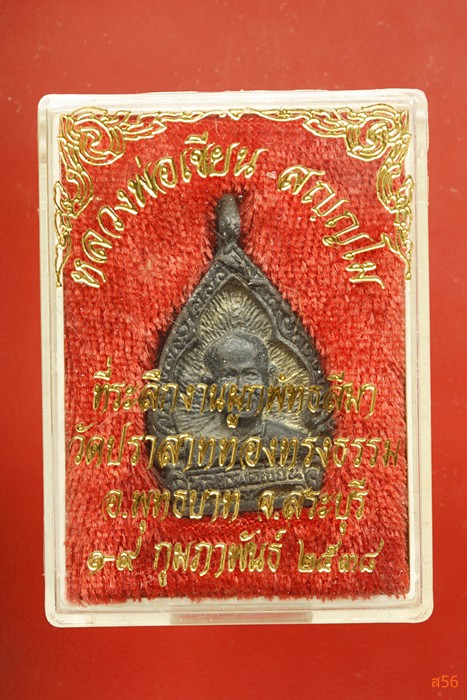 หลวงพ่อเขียน สญฺญโม
ที่ระลึกงานผูกพัทธสีมา
วัดปราสาททองทรงธรรม
อ.พุทธบาท จ.สระบุรี
๑-๙ กุมภาพันธ์ ๒๕๓๘
ส56